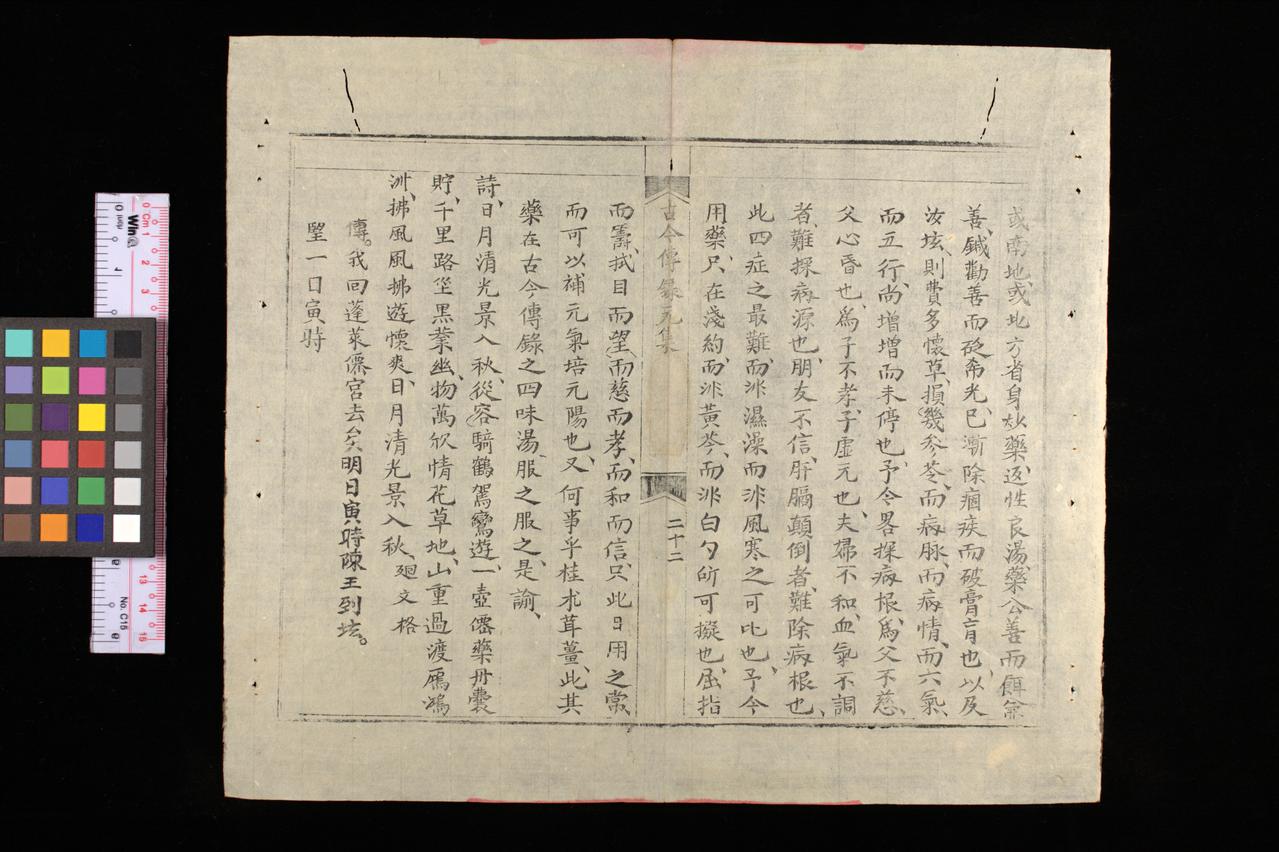 或南地、或北方、省身妙藥、返性良湯、藥公善而餌
善、鍼勸善而砭希光、巳漸除痼疾而破膏肓也、以及
汝坛、則費多懷草、損幾參苓、而病脉、而病情、而六氣、
而五行、尚增增而未停也、予令畧探病根、為父不慈、
父心昏也、為子不孝、子虛元也、夫婦不和、血氣不調
者、難探病源也、朋友不信、肝膈顛倒者、難除病根也、
此四症之最難、而非濕澡而非風寒之可比也、予今
用藥、只在淺約、而非黃芩、而非白勺所可擬也、屈指
古今傳錄元集
二十二
而籌、拭目而望、而慈而孝、而和而信、只此日用之常、
而可以補元氣培元陽也、又何事乎桂朮茸薑、此其
藥在古今傳錄之四味湯、服之服之、是諭、
詩、日月清光景入秋、從容騎鶴駕鸞遊、一壺僊藥丹囊
貯、千里路埊黑業幽、物萬欣情花草地、山重過渡雁鴻
洲、拂風風拂遊懷爽、日月清光景入秋、廻文格
傳。我回蓬萊僊宮去矣明日寅時陳王到坛。
望一日寅時